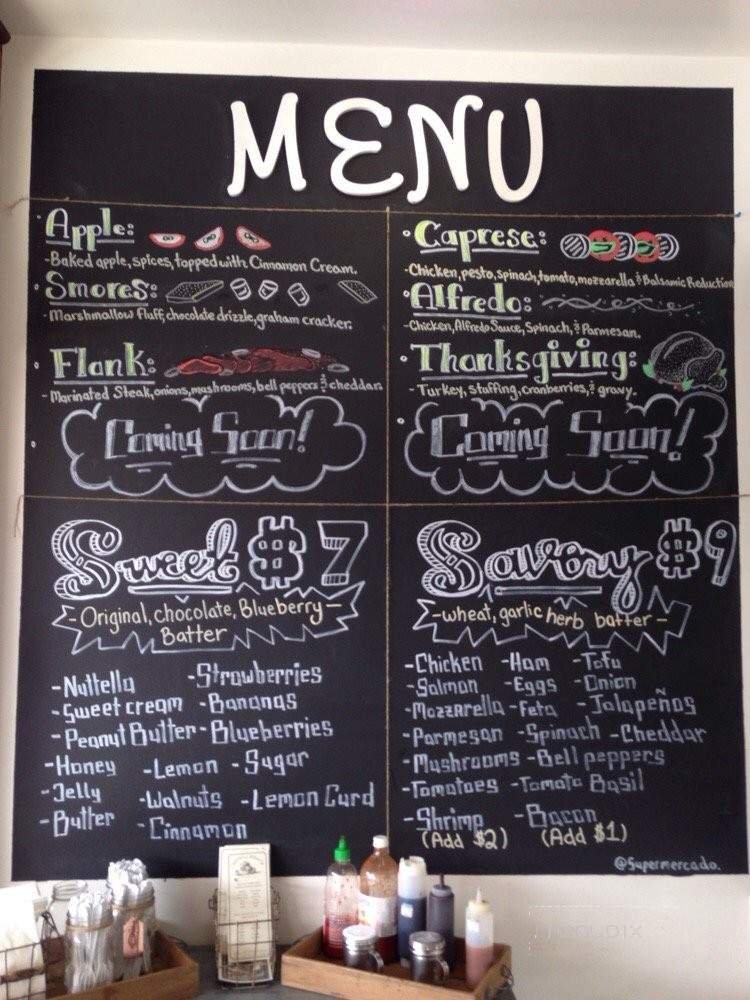 MENU
Apple:
-Baked apple, spices, topped with Cinnamon Cream.
Smores:
-Marshmallow fluff, chocolate drizzle, graham cracker.
Flank:
-Marinated Steak, onions, mushrooms, bell peppers & cheddar.
Coming Soon!
Caprese:
-Chicken, pesto, spinach, tomato, mozzarella & Balsamic Reduction
Alfredo:
-Chicken, Alfredo Sauce, Spinach, & Parmesan.
Thanksgiving:
-Turkey, stuffing, cranberries, & gravy.
Coming Soon!
Sweet $7
-Original, chocolate, Blueberry-
Batter
-Nuttella
-Strawberries
-Sweet cream -Bananas
-Peanut Butter -Blueberries
-Honey -Lemon -Sugar
-Jelly -Walnuts -Lemon Curd
-Butter -Cinnamon
Savory $9
-wheat, garlic herb batter-
-Chicken -Ham -Tofu
-Salmon -Eggs -Onion
-Mozzarella -Feta -Jalapeños
-Parmesan -Spinach -Cheddar
-Mushrooms -Bell peppers
-Tomatoes -Tomato Basil
-Shrimp -Bacon
(Add $2) (Add $1)
@Supermercado.